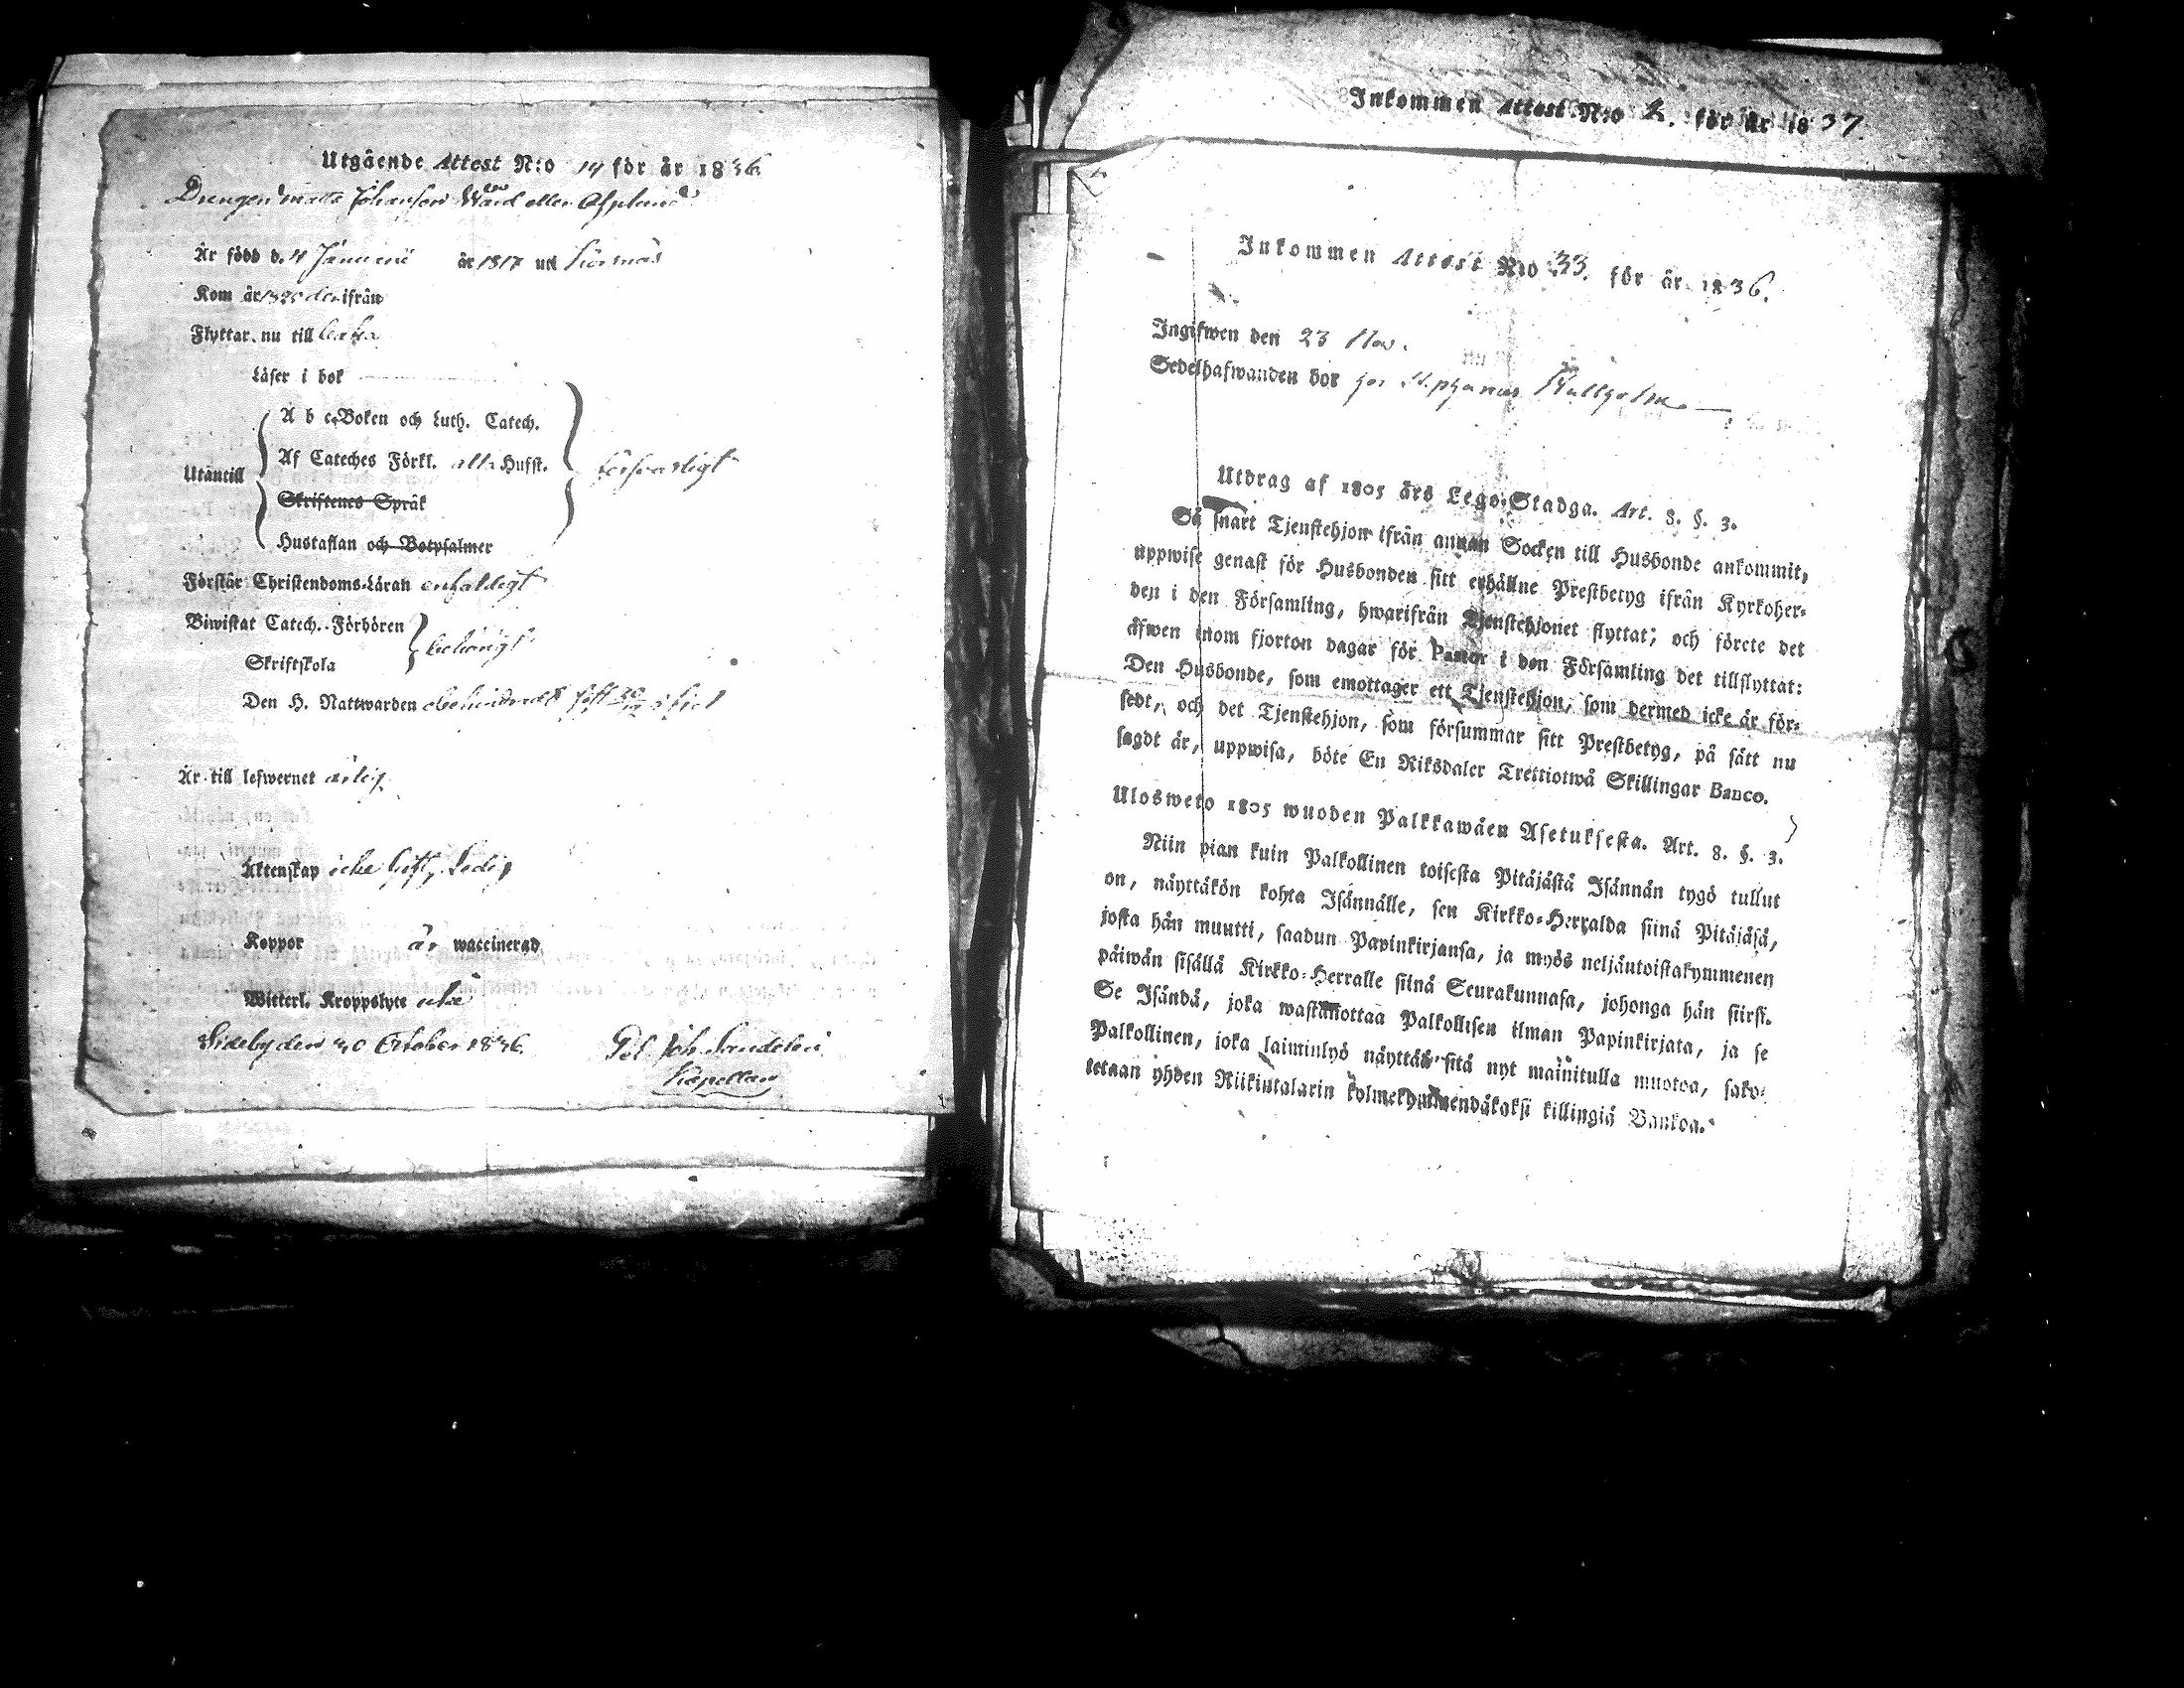 Utgående Attest N:o 14 för år 1836
Drengen Matts Johansson Wärd eller Asplund
Är född d. 4 Januarii år 1817 uti Härmäs
Kom år 1820 ifrån
Flyttar nu till
Läser i bok
A b c-Boken och Luth. Catech.
Af Cateches Förkl. alla Hufst.
Utantill
försvarligt
Skriftenes Språk
Hustaflan och Botpsalmer
Förstår Christendoms-Läran enfaldigt
Biwistat Catech.-Förhören
behörigt
Skriftskola
Den H. Nattwarden
Är till lefwernet ärlig
Äktenskap icke gift, Ledig
Koppor är waccinerad
Witterl. Kroppslyte icke
Sideby den 30 October 1836.
Pet. Joh. Sandelin
Kapellan
Inkommen Attest N:o 2. för år 1837.
Inkommen Attest N:o 33. för år 1836.
Ingifwen den 23 Nov.
Sedelhafwanden bor hos
Utdrag af 1805 års Lego-Stadga. Art. 8. §. 3.
Så snart Tjenstehjon ifrån annan Socken till Husbonde ankommit,
uppwise genast för Husbonden sitt erhållne Prestbetyg ifrån Kyrkoher-
den i den Församling, hwarifrån Tjenstehjonet flyttat; och förete det
äfwen inom fjorton dagar för Pastor i den Församling det tillflyttat:
Den Husbonde, som emottager ett Tjenstehjon, som dermed icke är för-
sedt, och det Tjenstehjon, som försummar sitt Prestbetyg, på sätt nu
sagdt är, uppwisa, böte En Riksdaler Trettiotwå Skillingar Banco.
Ulosweto 1805 wuoden Palkkawäen Asetuksesta. Art. 8. §. 3.
Niin pian kuin Palkollinen toisesta Pitäjästä Isännän tygö tullut
on, näyttäkön kohta Isännälle, sen Kirkko-Herralda siinä Pitäjäsä,
josta hän muutti, saadun Papinkirjansa, ja myös neljäntoistakymmenen
päiwän sisällä Kirkko-Herralle siinä Seurakunnasa, johonga hän siirsi.
Se Isändä, joka wastanottaa Palkollisen ilman Papinkirjata, ja se
Palkollinen, joka laiminlyö näyttää sitä nyt mainitulla muotoa, sako-
tetaan yhden Riikintalarin kolmekymmendäkaksi killingiä Bankoa.